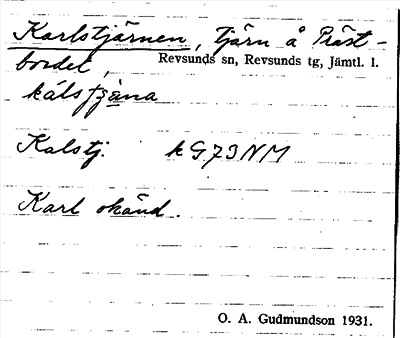 Karlstjärnen, tjärn å Präst-
bordet, Revsunds sn, Revsunds tg, Jämtl. l.
Kalstj. kG.73NM
Karl okänd.
O. A. Gudmundson 1931.